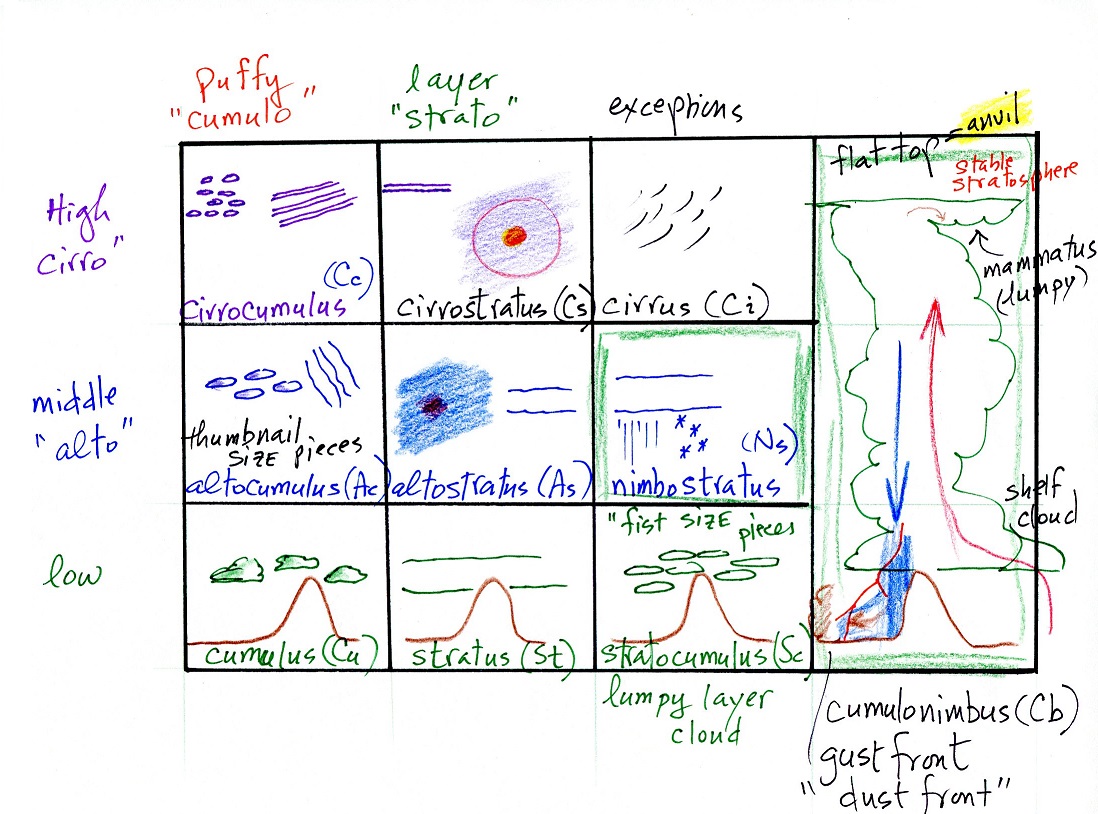 puffy
"cumulo"
layer
"strato"
exceptions
flat top = anvil
stable
stratosphere
mammatus
(lumpy)
shelf
cloud
High
cirro"
(Cc)
cirrocumulus
cirrostratus (Cs)
cirrus (Ci)
middle
"alto"
thumbnail
SIZE pieces
altocumulus (Ac)
altostratus (As)
(Ns)
nimbostratus
low
cumulus (Cu)
stratus (St)
"fist SIZE pieces
stratocumulus (Sc
lumpy layer
cloud
cumulonimbus (Cb)
gust front
"dust front"